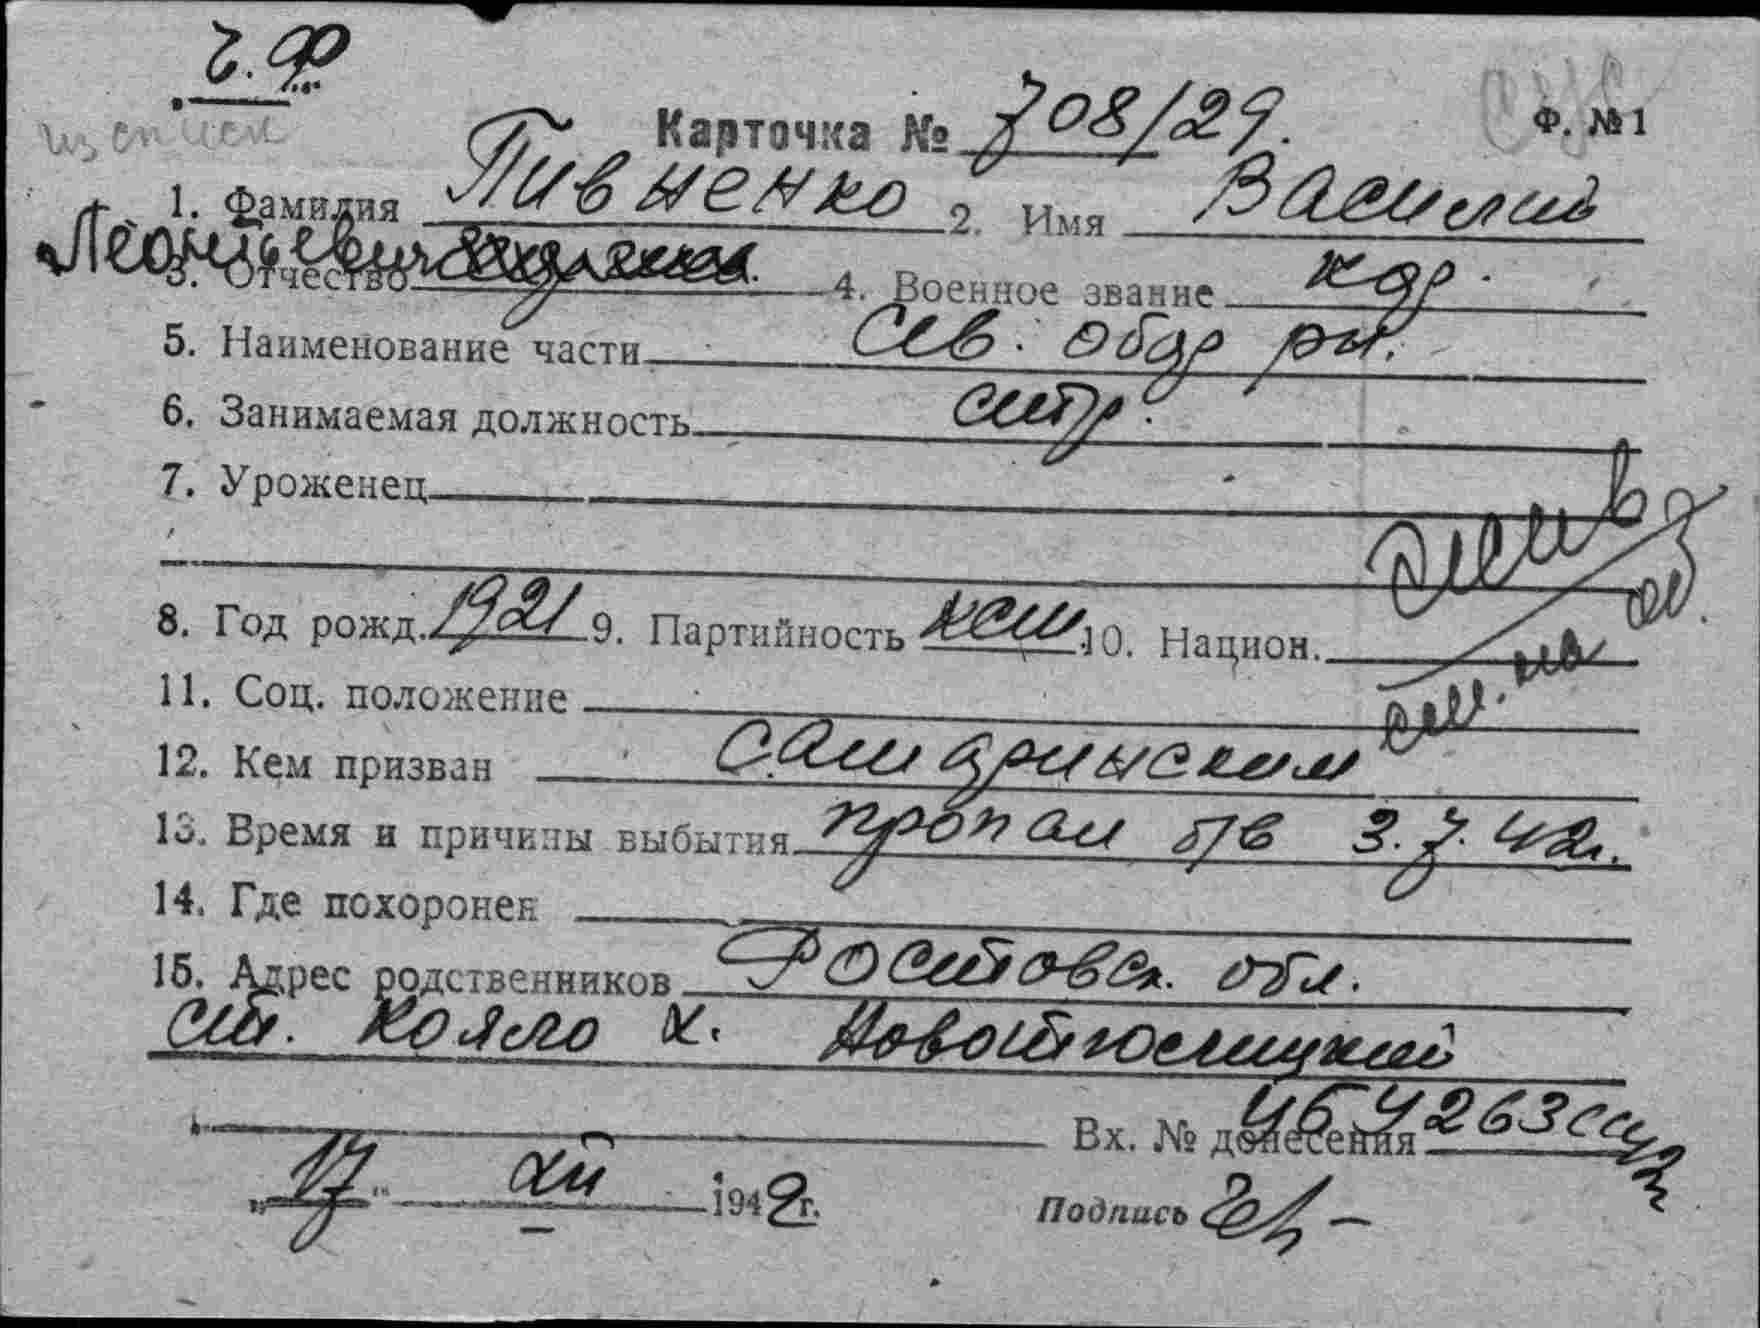 ч.Ф
Карточка № 708/29. Ф. №1
1. Фамилия Пивненко 2. Имя Василий
Леонтьевич
3. Отчество 4. Военное звание кдр.
5. Наименование части Сев. обор рн.
6. Занимаемая должность стр.
7. Уроженец
8. Год рожд. 1921 9. Партийность ксм 10. Национ.
11. Соц. положение
12. Кем призван Самаринским
13. Время и причины выбытия пропал б/в 3.7.42г.
14. Где похоронен
15. Адрес родственников Ростовск. обл.
ст. Кояло х.
Вх. № донесения 4263
„17“ XII 1942г. Подпись